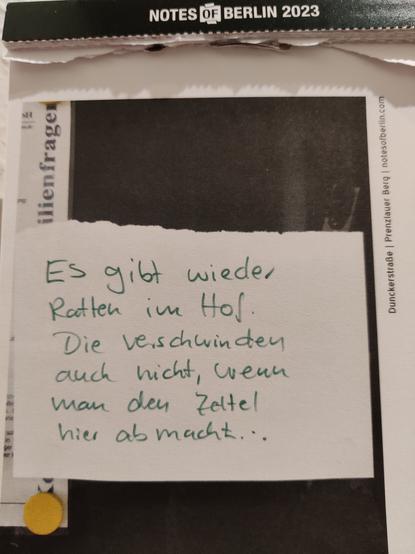 NOTES OF BERLIN 2023
ilienfragen
Es gibt wieder
Ratten im Hof.
Die verschwinden
auch nicht, wenn
man den Zettel
hier abmacht...
Dunckerstraße | Prenzlauer Berg | notesofberlin.com